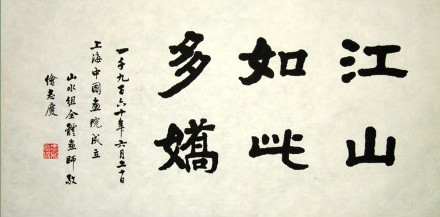 江山
如此
多嬌
一千九百六十年六月二十日
上海中國畫院成立
山水組全體畫師敬
繪志慶